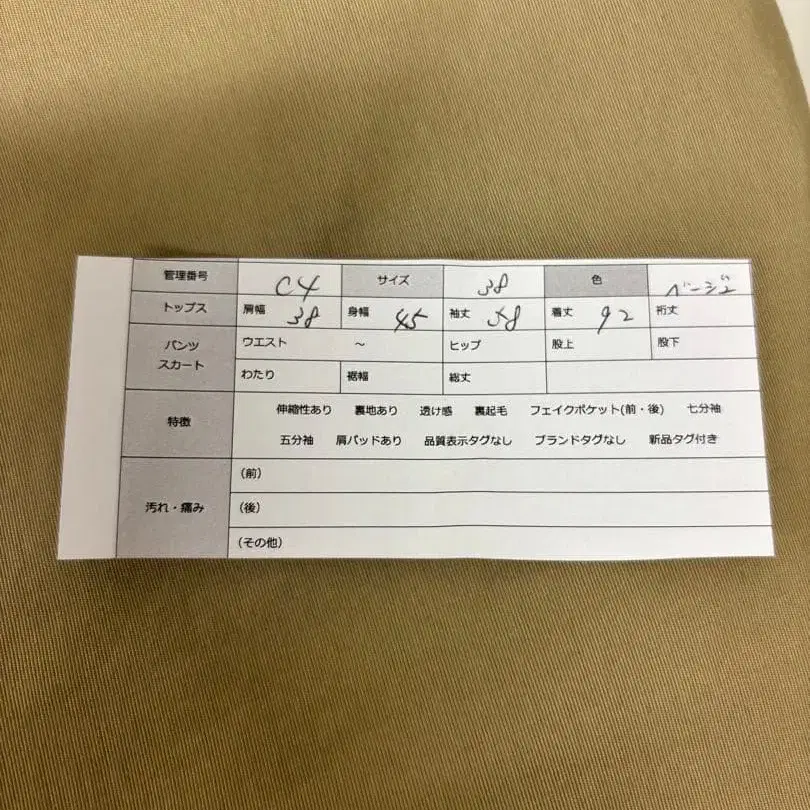 管理番号 C4 サイズ 38 色 ベージュ
トップス 肩幅 38 身幅 45 袖丈 58 着丈 92 裄丈
パンツ スカート ウエスト ～ ヒップ 股上 股下
わたり 裾幅 総丈
特徴 伸縮性あり 裏地あり 透け感 裏起毛 フェイクポケット(前・後) 七分袖
五分袖 肩パッドあり 品質表示タグなし ブランドタグなし 新品タグ付き
汚れ・痛み (前)
(後)
(その他)